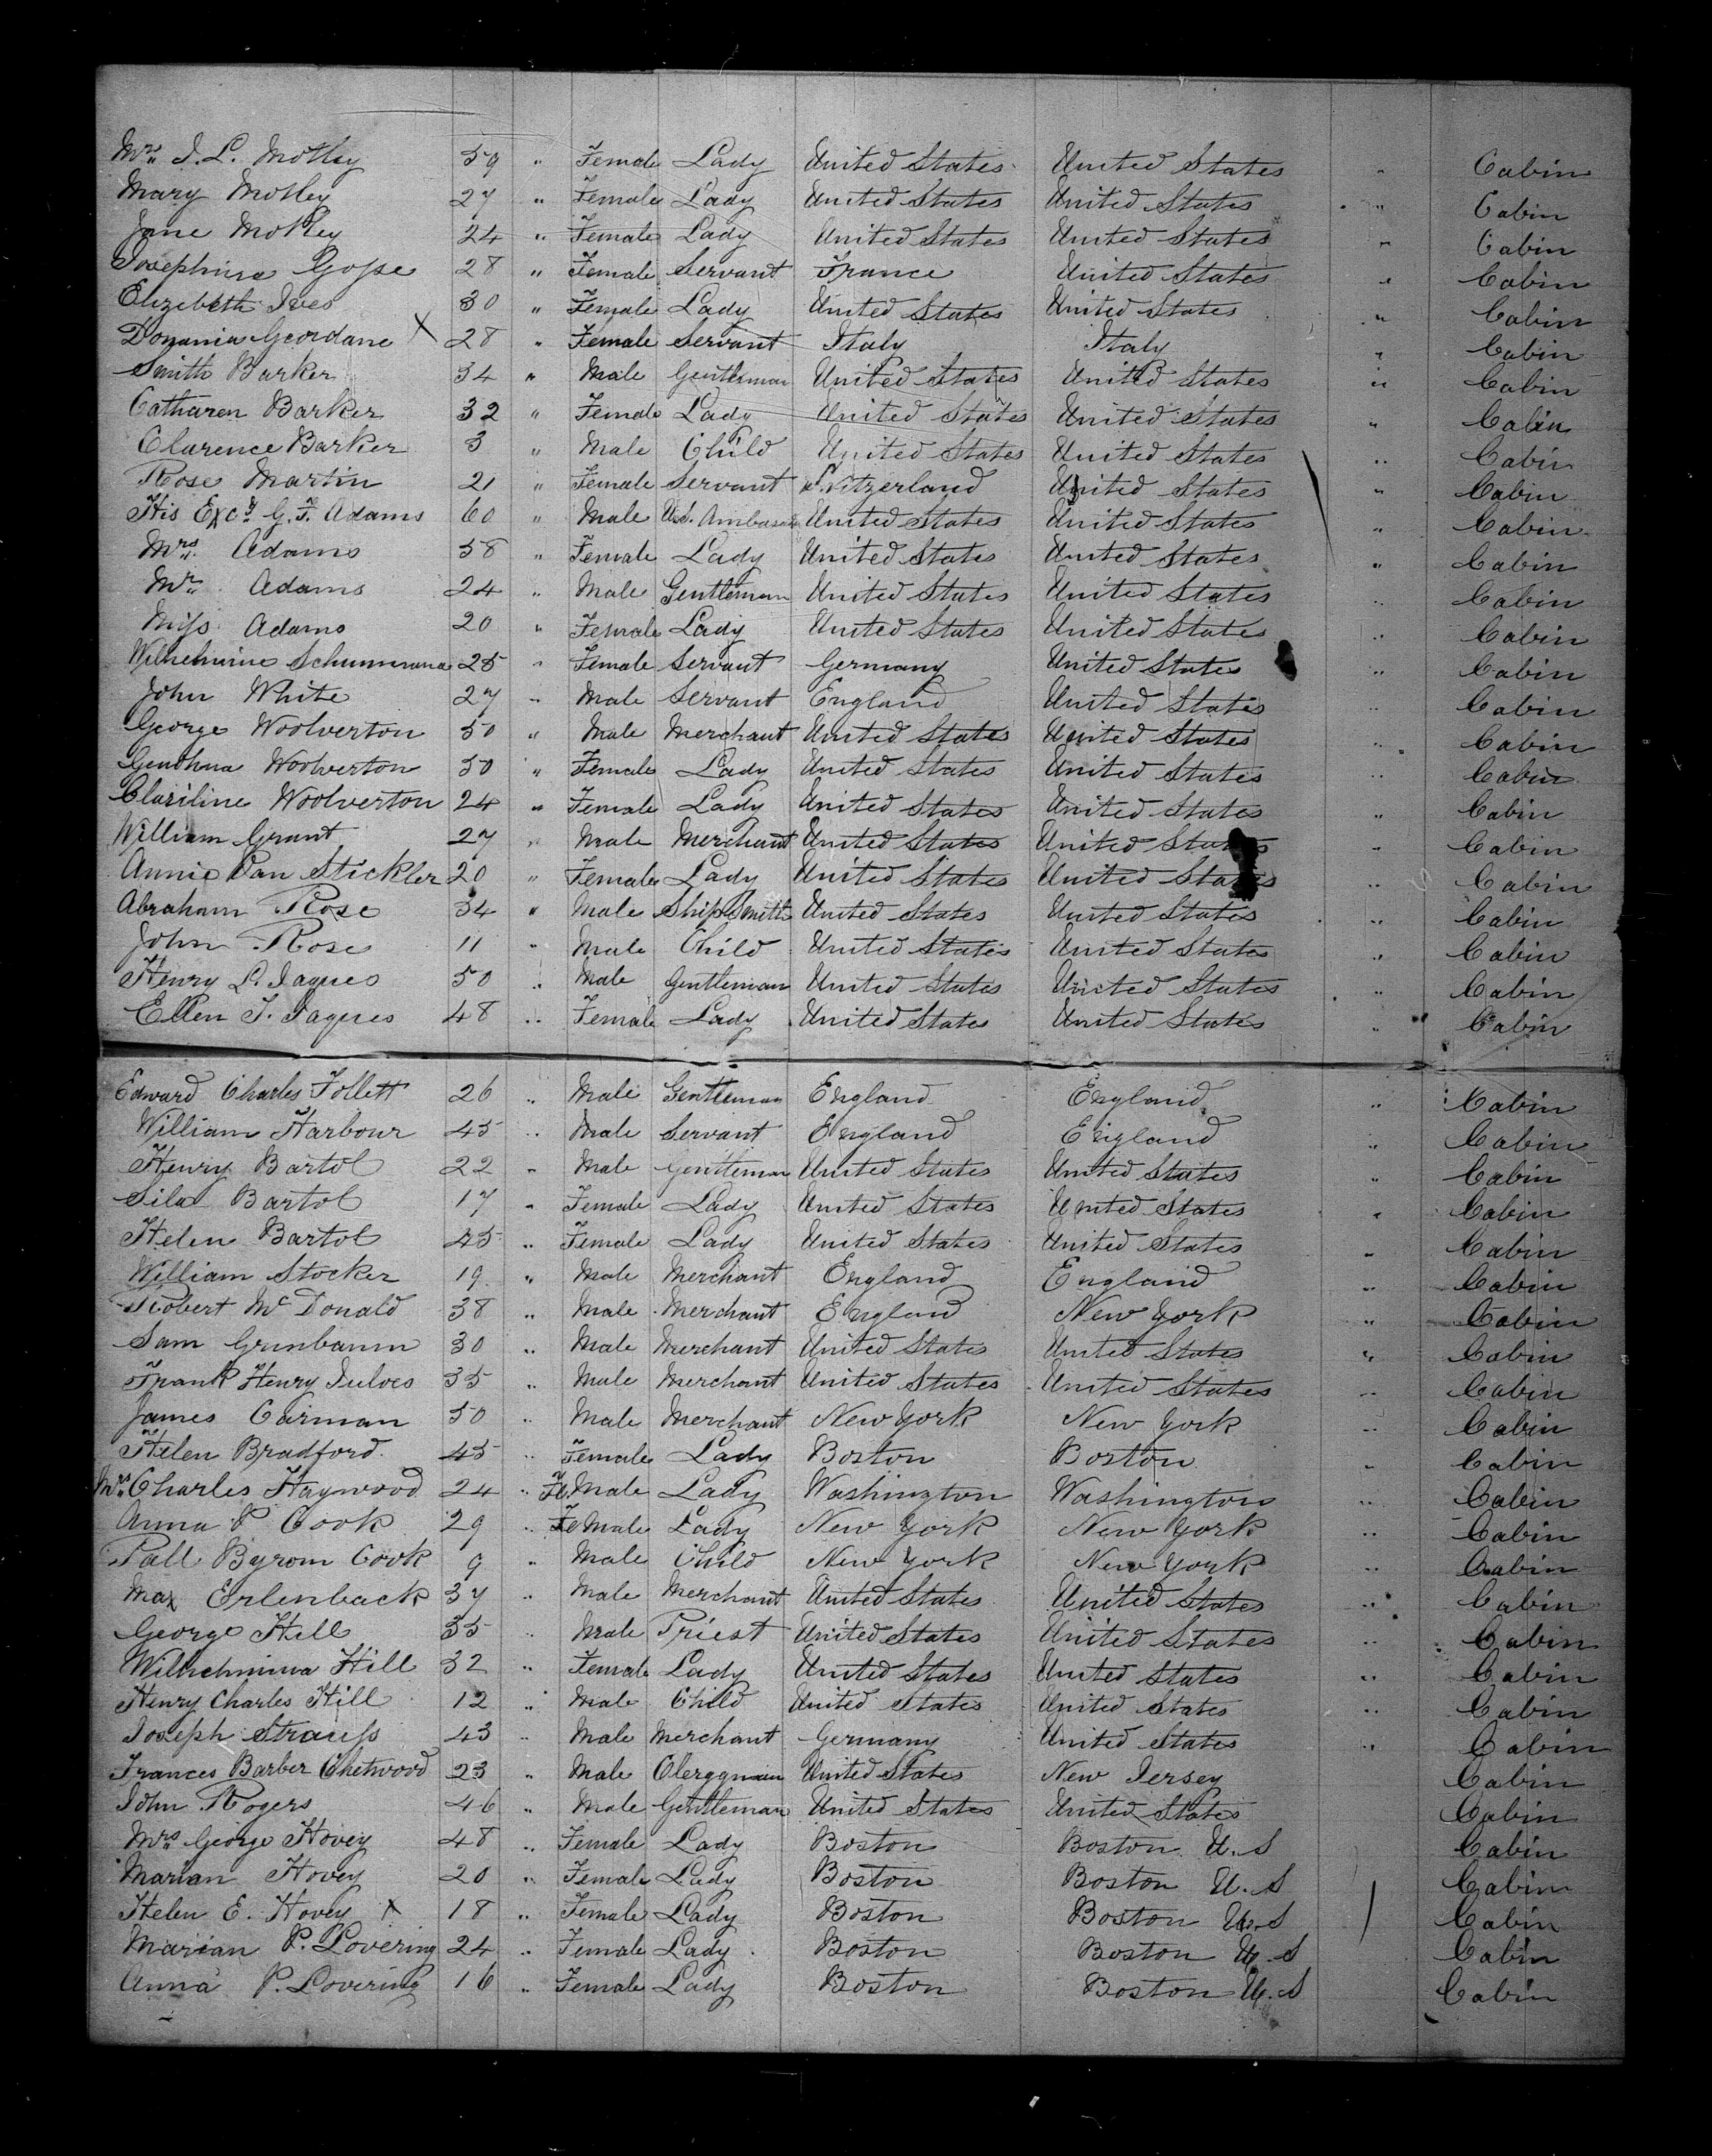 Mrs. J. L. Motley 59 " Female Lady United States United States " Cabin
Mary Motley 27 " Female Lady United States United States " Cabin
Jane Motley 24 " Female Lady United States United States " Cabin
Josephine Gosse 28 " Female Servant France United States " Cabin
Elizebeth Ives 30 " Female Lady United States United States " Cabin
Geordane X 28 " Female Servant Italy Italy " Cabin
Smith Barker 34 " Male Gentleman United States United States " Cabin
Catharen Barker 32 " Female Lady United States United States " Cabin
Clarence Barker 3 " Male Child United States United States " Cabin
Rose Martin 21 " Female Servant Switzerland United States " Cabin
His Excy. G. F. Adams 60 " Male U.S. Ambasad United States United States " Cabin
Mrs. Adams 58 " Female Lady United States United States " Cabin
Mr. Adams 24 " Male Gentleman United States United States " Cabin
Miss Adams 20 " Female Lady United States United States " Cabin
Wilhelmine Schummana 25 " Female Servant Germany United States " Cabin
John White 27 " Male Servant England United States " Cabin
George Woolverton 50 " Male Merchant United States United States " Cabin
Woolverton 50 " Female Lady United States United States " Cabin
Clariline Woolverton 24 " Female Lady United States United States " Cabin
William Grant 27 " Male Merchant United States United States " Cabin
Annie Van Stickler 20 " Female Lady United States United States " Cabin
Abraham Rose 34 " Male Ship Smith United States United States " Cabin
John Rose 11 " Male Child United States United States " Cabin
Henry L. Jaques 50 " Male Gentleman United States United States " Cabin
Ellen J. Jaques 48 " Female Lady United States United States " Cabin
Edward Charles Follett 26 " Male Gentleman England England " Cabin
William Harbour 45 " Male Servant England England " Cabin
Henry Bartol 22 " Male Gentleman United States United States " Cabin
Bartol 17 " Female Lady United States United States " Cabin
Helen Bartol 45 " Female Lady United States United States " Cabin
William Stocker 19 " Male Merchant England England " Cabin
Robert Mc Donald 38 " Male Merchant England New York " Cabin
Sam Grunbaum 30 " Male Merchant United States United States " Cabin
Frank Henry 35 " Male Merchant United States United States " Cabin
James Carman 50 " Male Merchant New York New York " Cabin
Helen Bradford 45 " Female Lady Boston Boston " Cabin
Mrs. Charles Haywood 24 " FeMale Lady Washington Washington " Cabin
Anna P Cook 29 " FeMale Lady New York New York " Cabin
Pall Byrom Cook 9 " Male Child New York New York " Cabin
Max Erlenback 37 " Male Merchant United States United States " Cabin
George Hill 35 " Male Priest United States United States " Cabin
Wilhelmina Hill 32 " Female Lady United States United States " Cabin
Henry Charles Hill 12 " Male Child United States United States " Cabin
Joseph Strauss 43 " Male Merchant Germany United States " Cabin
Frances Barber Chetwood 23 " Male Clergyman United States New Jersey Cabin
John Rogers 46 " Male Gentleman United States United States Cabin
Mrs. George Hovey 48 " Female Lady Boston Boston U.S Cabin
Marian Hovey 20 " Female Lady Boston Boston U.S Cabin
Helen E. Hovey X 18 " Female Lady Boston Boston U.S Cabin
Marian P. Lovering 24 " Female Lady Boston Boston U.S Cabin
Anna P. Lovering 16 " Female Lady Boston Boston U.S Cabin